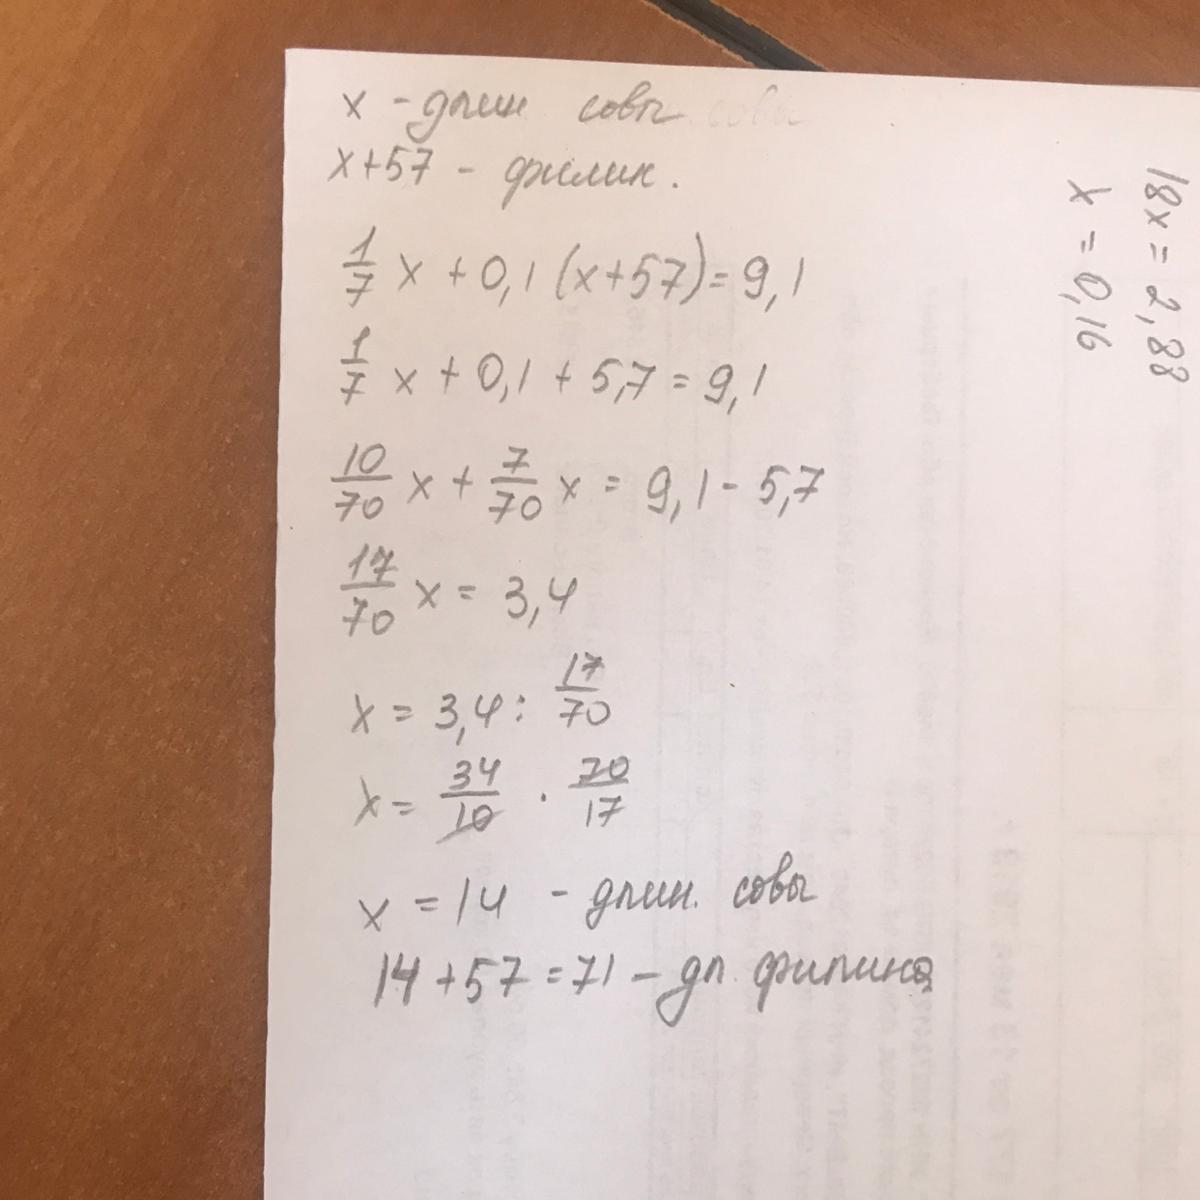 x - длин совы
x+57 - филин.
1/7 x + 0,1 (x+57) = 9,1
1/7 x + 0,1 + 5,7 = 9,1
10/70 x + 7/70 x = 9,1 - 5,7
17/70 x = 3,4
x = 3,4 : 17/70
x = 34/10 · 70/17
x = 14 - длин. совы
14 + 57 = 71 - дл. филина
18x = 2,88
x = 0,16